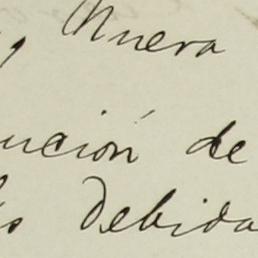 , Nueva
ución de
s Debida